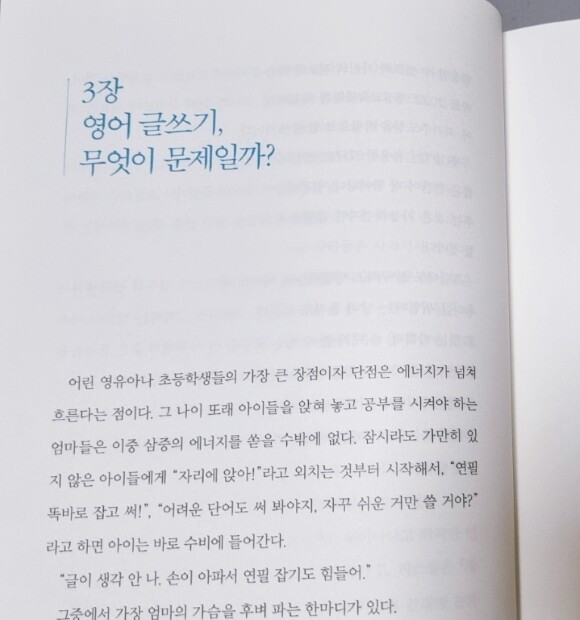 3장
영어 글쓰기,
무엇이 문제일까?
어린 영유아나 초등학생들의 가장 큰 장점이자 단점은 에너지가 넘쳐
흐른다는 점이다. 그 나이 또래 아이들을 앉혀 놓고 공부를 시켜야 하는
엄마들은 이중 삼중의 에너지를 쏟을 수밖에 없다. 잠시라도 가만히 있
지 않은 아이들에게 “자리에 앉아!”라고 외치는 것부터 시작해서, “연필
똑바로 잡고 써!”, “어려운 단어도 써 봐야지, 자꾸 쉬운 거만 쓸 거야?”
라고 하면 아이는 바로 수비에 들어간다.
“글이 생각 안 나. 손이 아파서 연필 잡기도 힘들어.”
그중에서 가장 엄마의 가슴을 후벼 파는 한마디가 있다.